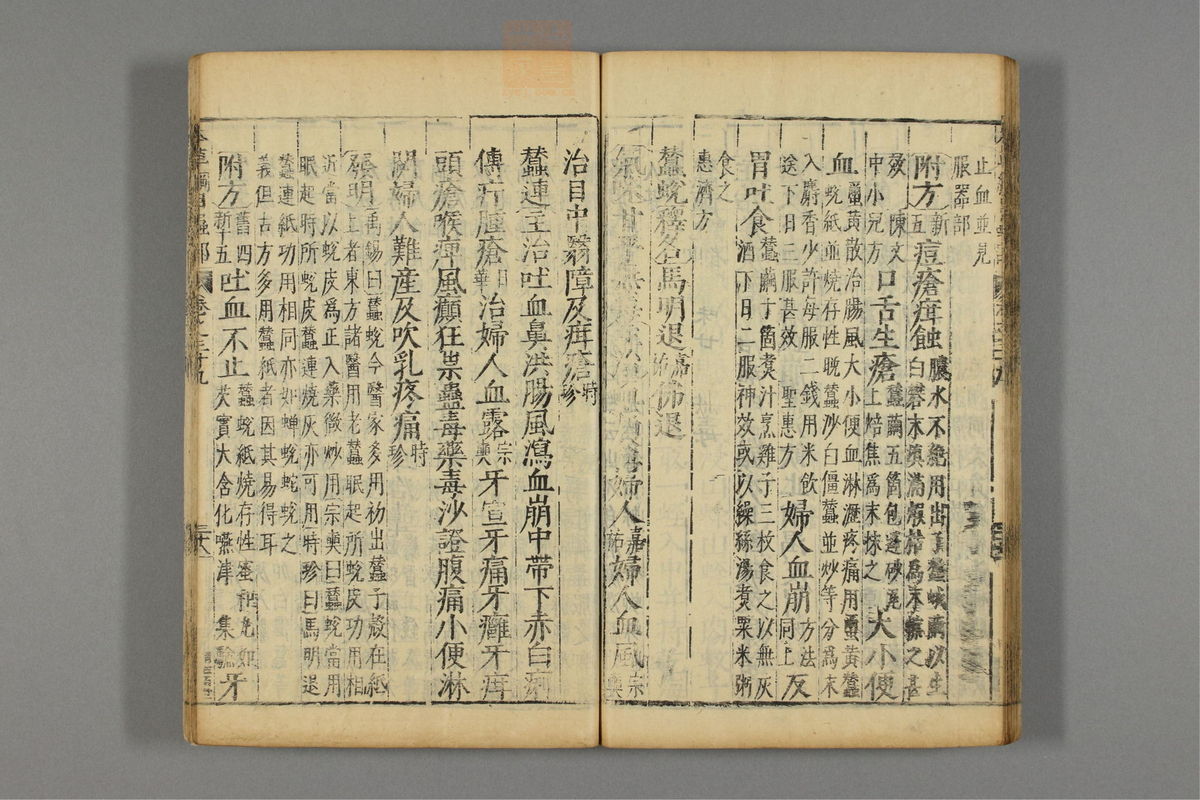 止血並見
服器部
附方新五痘瘡疳蝕膿水不絶用出了蠶蛾繭以生
白礬末填滿煆枯為末擦之甚
效陳文
中小兒方口舌生瘡蠶繭五箇包蓬砂瓦
上焙焦為末抹之大小便
血蠒黃散治腸風大小便血淋瀝疼痛用蠒黃蠶
蛻紙並燒存性晚蠶沙白僵蠶並炒等分為末
入麝香少許每服二錢用米飲
送下日三服甚效聖惠方婦人血崩方法
同上反
胃吐食蠶繭十箇煮汁烹雞子三枚食之以無灰
酒下日二服神效或以繰絲湯煮粟米粥
食之
惠濟方
蠶蛻釋名馬明退嘉祐佛退
氣味甘平無毒主治婦人嘉祐婦人血風宗奭
治目中翳障及疳瘡時珍
蠶連主治吐血鼻洪腸風瀉血崩中帶下赤白痢
傅疔腫瘡日華治婦人血露宗奭牙宣牙痛牙癰牙疳
頭瘡喉痺風癲狂祟蠱毒藥毒沙證腹痛小便淋
閉婦人難產及吹乳疼痛時珍
發明禹錫曰蠶蛻今醫家多用初出蠶子殼在紙
上者東方諸醫用老蠶眠起所蛻皮功用相
近當以蛻皮為正入藥微炒用宗奭曰蠶蛻當用
眠起時所蛻皮蠶連燒灰亦可用時珍曰馬明退
蠶連紙功用相同亦如蟬蛻蛇蛻之
義但古方多用蠶紙者因其易得耳
附方舊四新十五吐血不止蠶蛻紙燒存性蜜和丸如
芡實大含化嚥津集驗牙